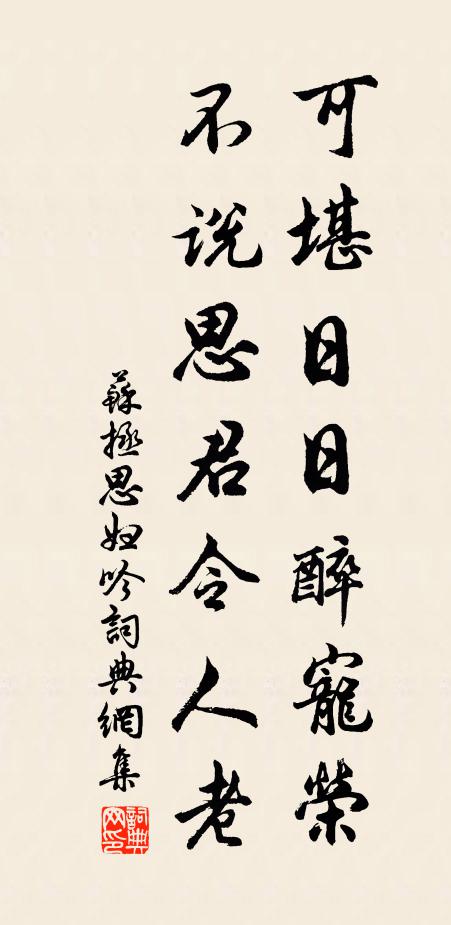 可堪日日醉寵榮
不说思君令人老
蘇拯思婦吟詞典網集
詞典網印